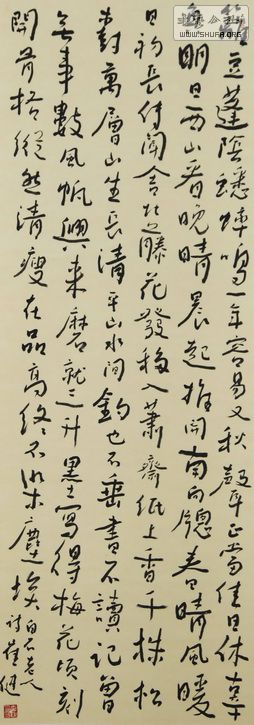 籬豆蓬陰蟋蟀鳴一年容易又秋聲正當佳日休辜
負明日西山看晚晴晨起推開南向窗春晴風暖
日初長舍北藤花發移入蕭齋紙上香千株松
對萬層山生長清平山水間釣也不垂書不讀記曾
無事數風帆興來磨就三升墨寫得梅花頃刻
開骨格縱然清瘦在品高終不染塵埃
白石老人詩 崔
WWW.SHUFA.ORG